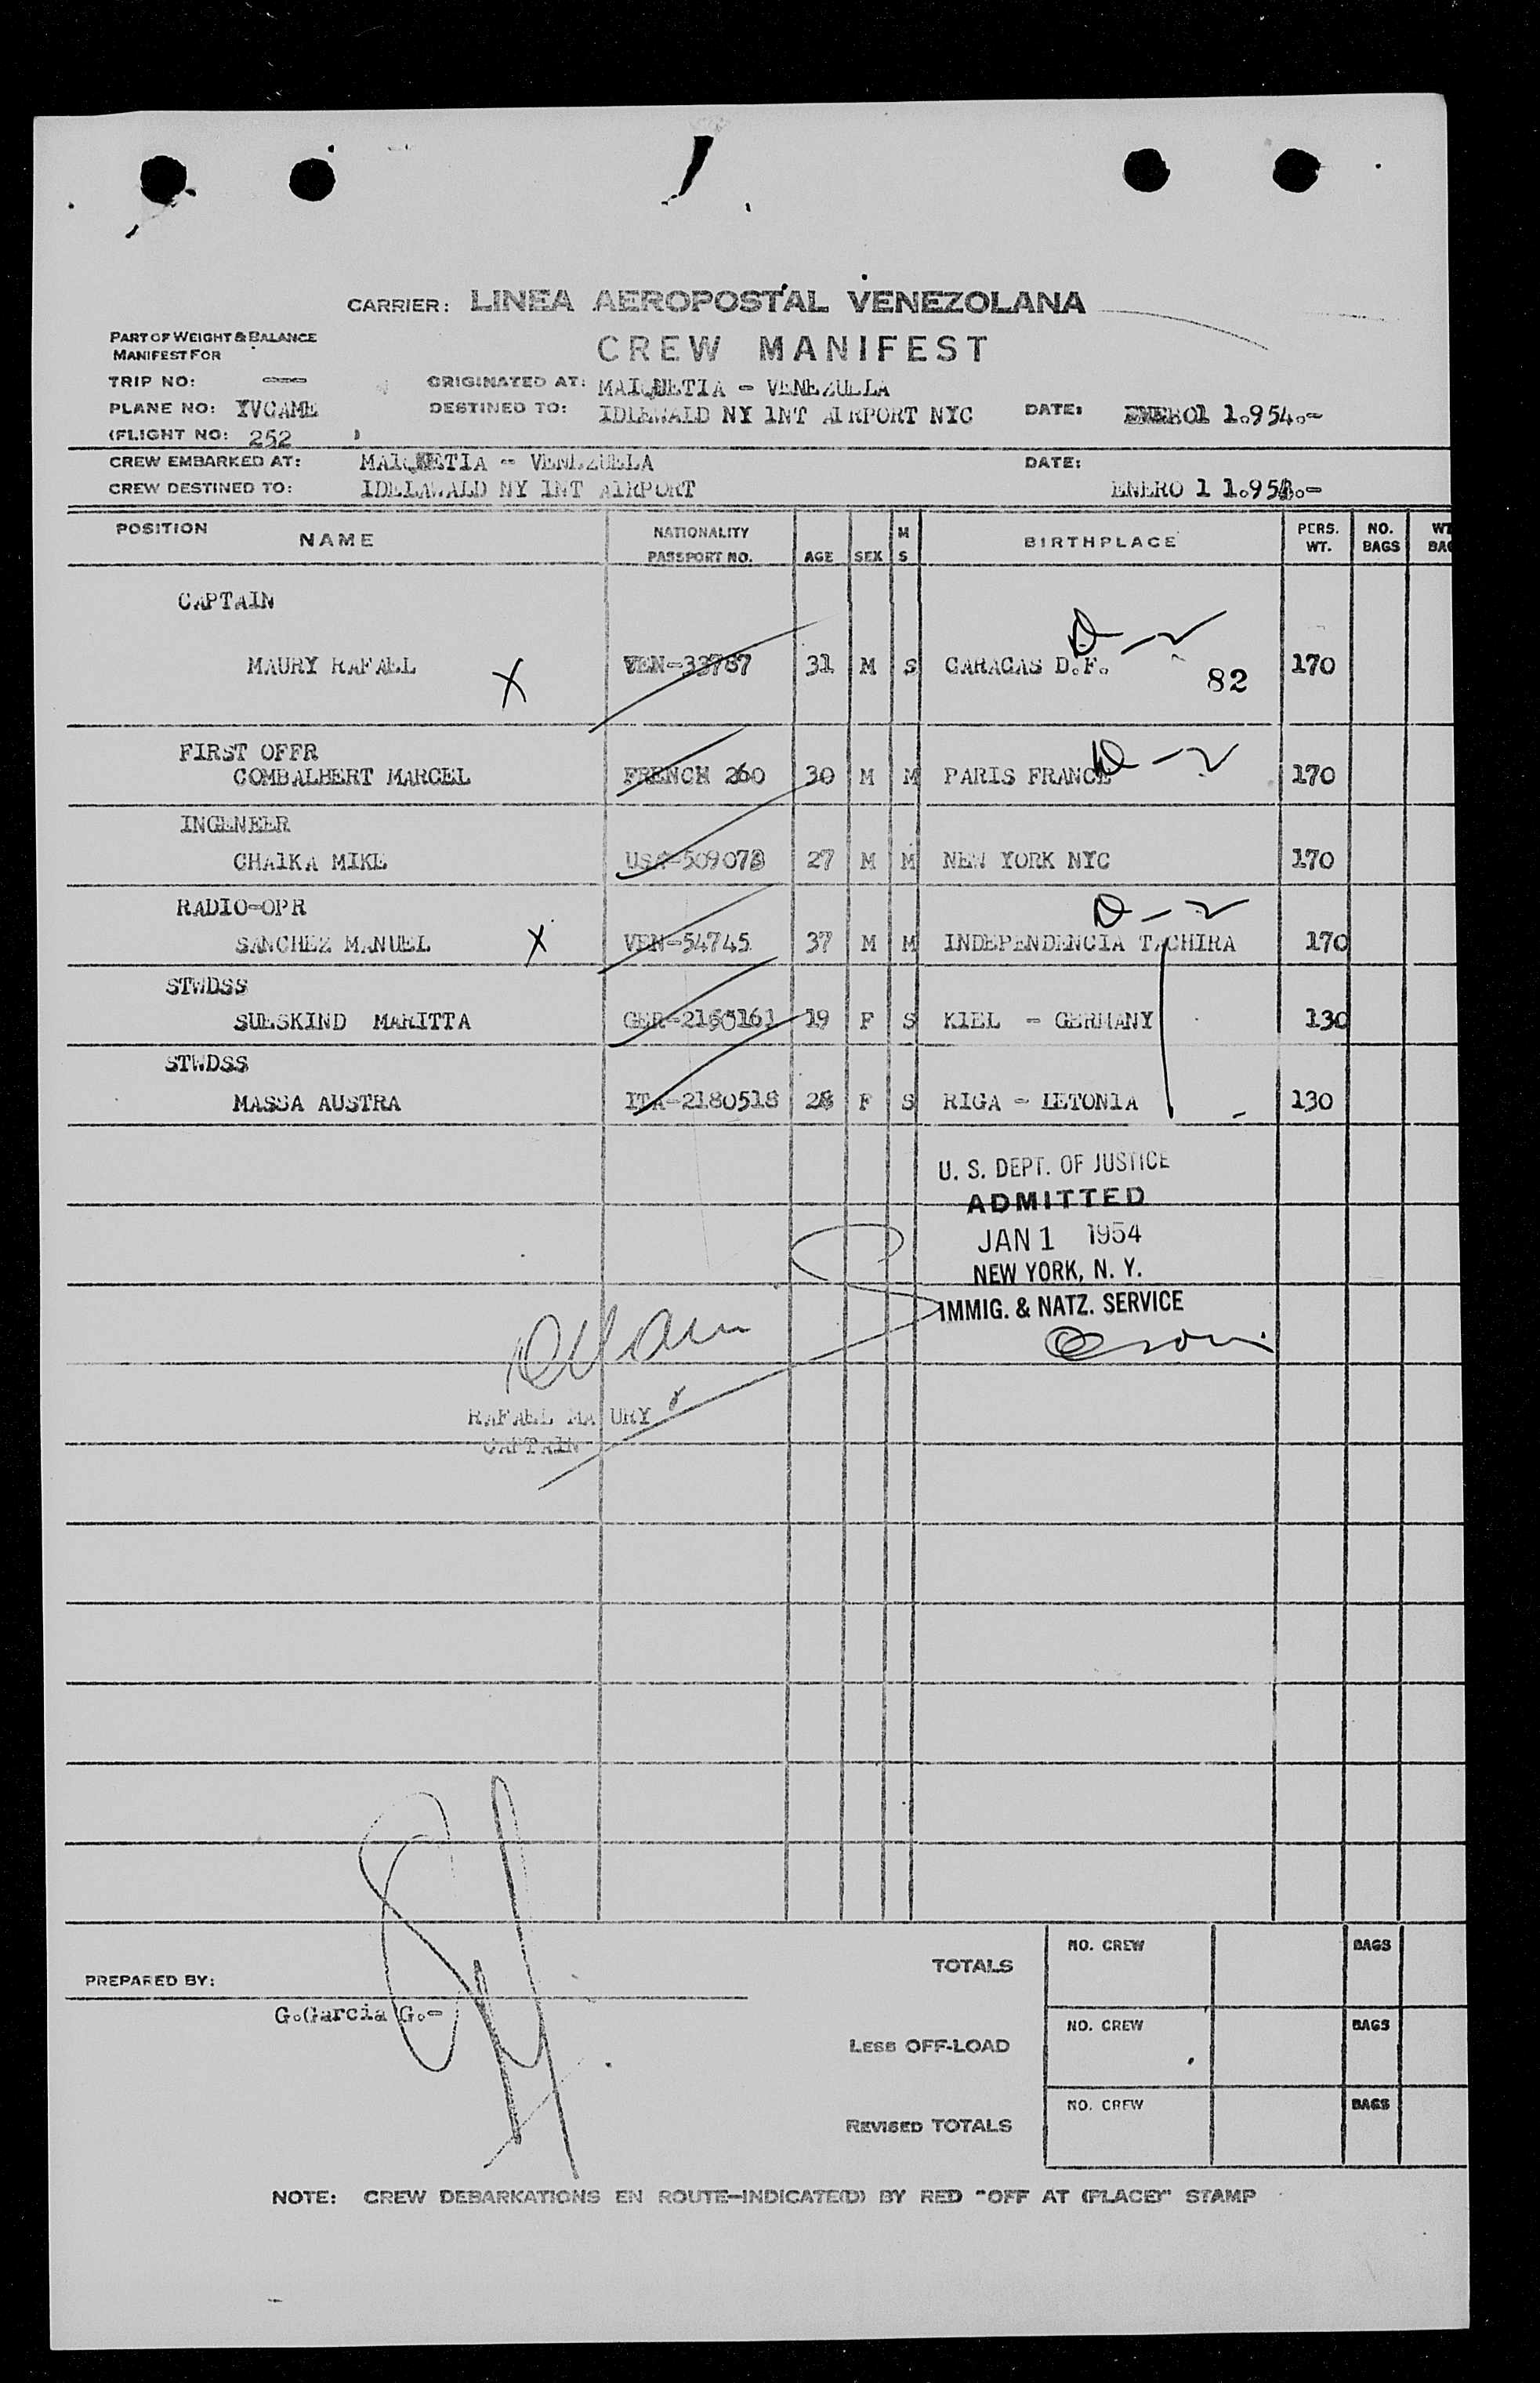 CARRIER: LINEA AEROPOSTAL VENEZOLANA
PART OF WEIGHT & BALANCE
MANIFEST FOR
CREW MANIFEST
TRIP NO: ---
ORIGINATED AT: MAIQUETIA - VENEZUELA
PLANE NO: YVCAME
DESTINED TO: IDLEWALD NY INT AIRPORT NYC
DATE: ENERO1 1.954.-
(FLIGHT NO: 252 )
CREW EMBARKED AT: MAIQUETIA - VENEZUELA
DATE:
CREW DESTINED TO: IDELAWALD NY INT AIRPORT
ENERO 1 1.954.-
POSITION NAME NATIONALITY PASSPORT NO. AGE SEX M S BIRTHPLACE PERS. WT. NO. BAGS WT BAG
CAPTAIN
D-2
MAURY RAFAEL X VEN-33767 31 M S CARACAS D.F. 82 170
FIRST OFFR
COMBALBERT MARCEL FRENCH 260 30 M M PARIS FRANCE D-2 170
INGENEER
CHAIKA MIKE USA-509073 27 M M NEW YORK NYC 170
RADIO-OPR
D-2
SANCHEZ MANUEL X VEN-54745 37 M M INDEPENDENCIA TACHIRA 170
STWDSS
SUESKIND MARITTA GER-2165161 19 F S KIEL - GERMANY 130
STWDSS
MASSA AUSTRA ITA-2180518 28 F S RIGA - LETONIA 130
U. S. DEPT. OF JUSTICE
ADMITTED
JAN 1 1954
NEW YORK, N. Y.
IMMIG. & NATZ. SERVICE
RAFAEL MAURY
CAPTAIN
PREPARED BY:
G.Garcia G.-
TOTALS NO. CREW BAGS
LESS OFF-LOAD NO. CREW BAGS
REVISED TOTALS NO. CREW BAGS
NOTE: CREW DEBARKATIONS EN ROUTE-INDICATE(D) BY RED "OFF AT (PLACE)" STAMP